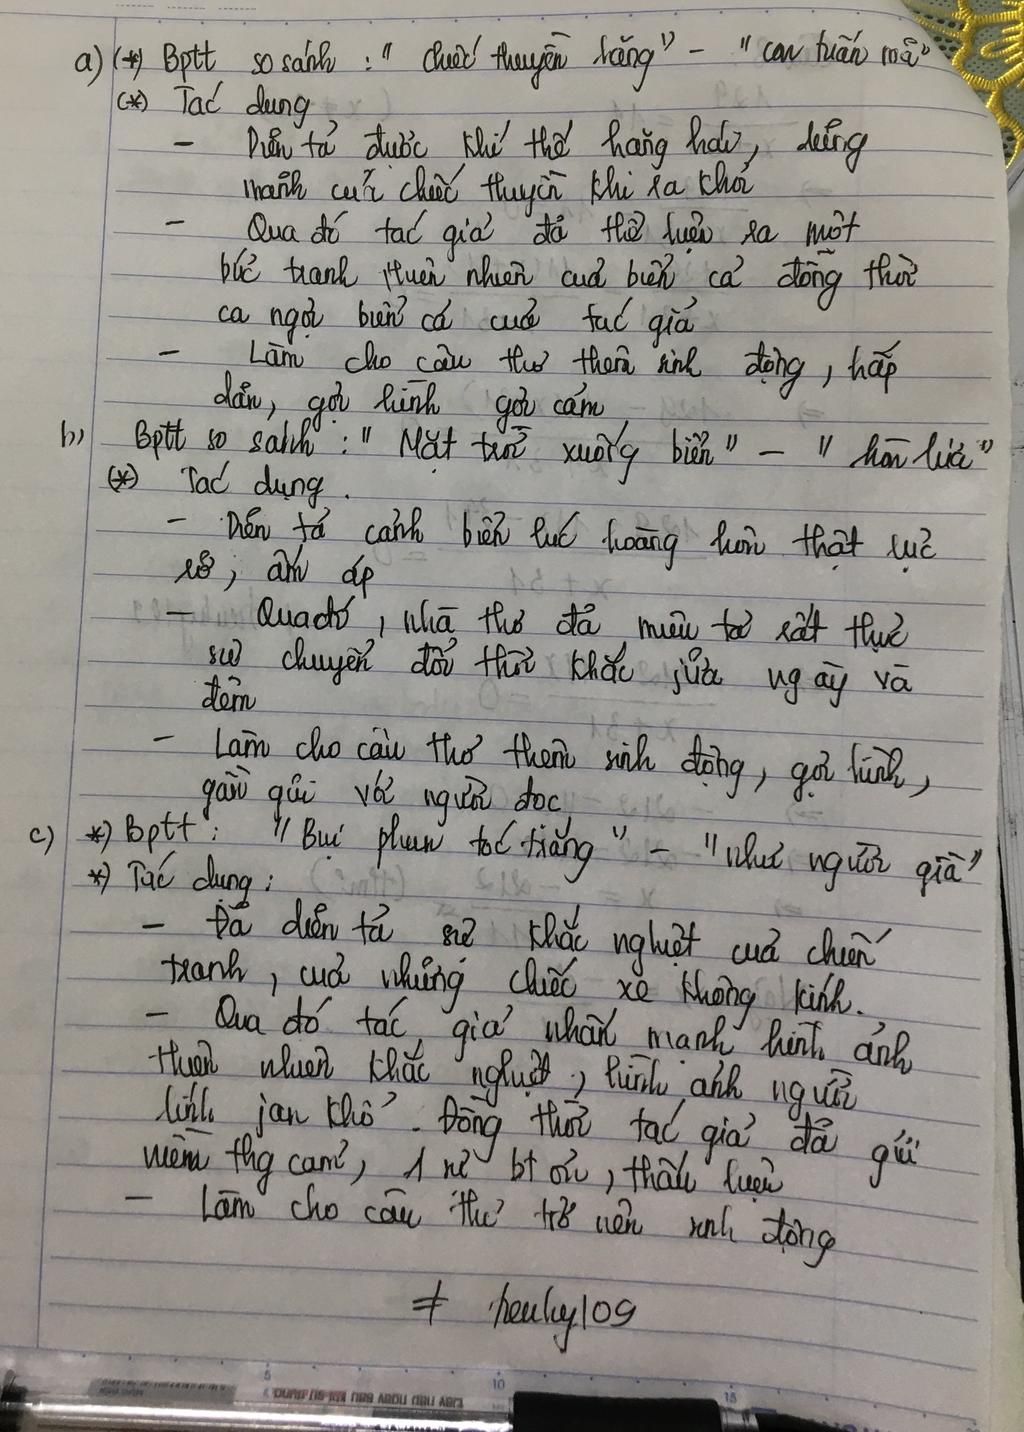 a) (*) Bptt so sánh : " chiếc thuyền hăng" - " con tuấn mã"
(*) Tác dụng
- Diễn tả được khí thế hăng hái, dũng
mạnh của chiếc thuyền khi ra khơi
- Qua đó tác giả đã thể hiện ra một
bức tranh thiên nhiên của biển cả đồng thời
ca ngợi biển cả của tác giả
- Làm cho câu thơ thêm sinh động, hấp
dẫn, gợi hình gợi cảm
b) Bptt so sánh : " Mặt trời xuống biển" - " hòn lửa"
(*) Tác dụng.
- Diễn tả cảnh biển lúc hoàng hôn thật rực
rỡ, ấm áp
- Qua đó, nhà thơ đã miêu tả rất thực
sự chuyển đổi thời khắc jữa ngày và
đêm
- Làm cho câu thơ thêm sinh động, gợi hình,
gần gũi với người đọc
c) *) Bptt : " Bụi phun tóc trắng" - "như người già"
*) Tác dụng :
- Đã diễn tả sự khắc nghiệt của chiến
tranh, của những chiếc xe không kính.
- Qua đó tác giả nhấn mạnh hình ảnh
thiên nhiên khắc nghiệt, hình ảnh người
lính jan khổ. Đồng thời tác giả đã gửi
niềm thg cảm, 1 sự bt ơn, thấu hiểu
- Làm cho câu thơ trở nên sinh động
5 10 15